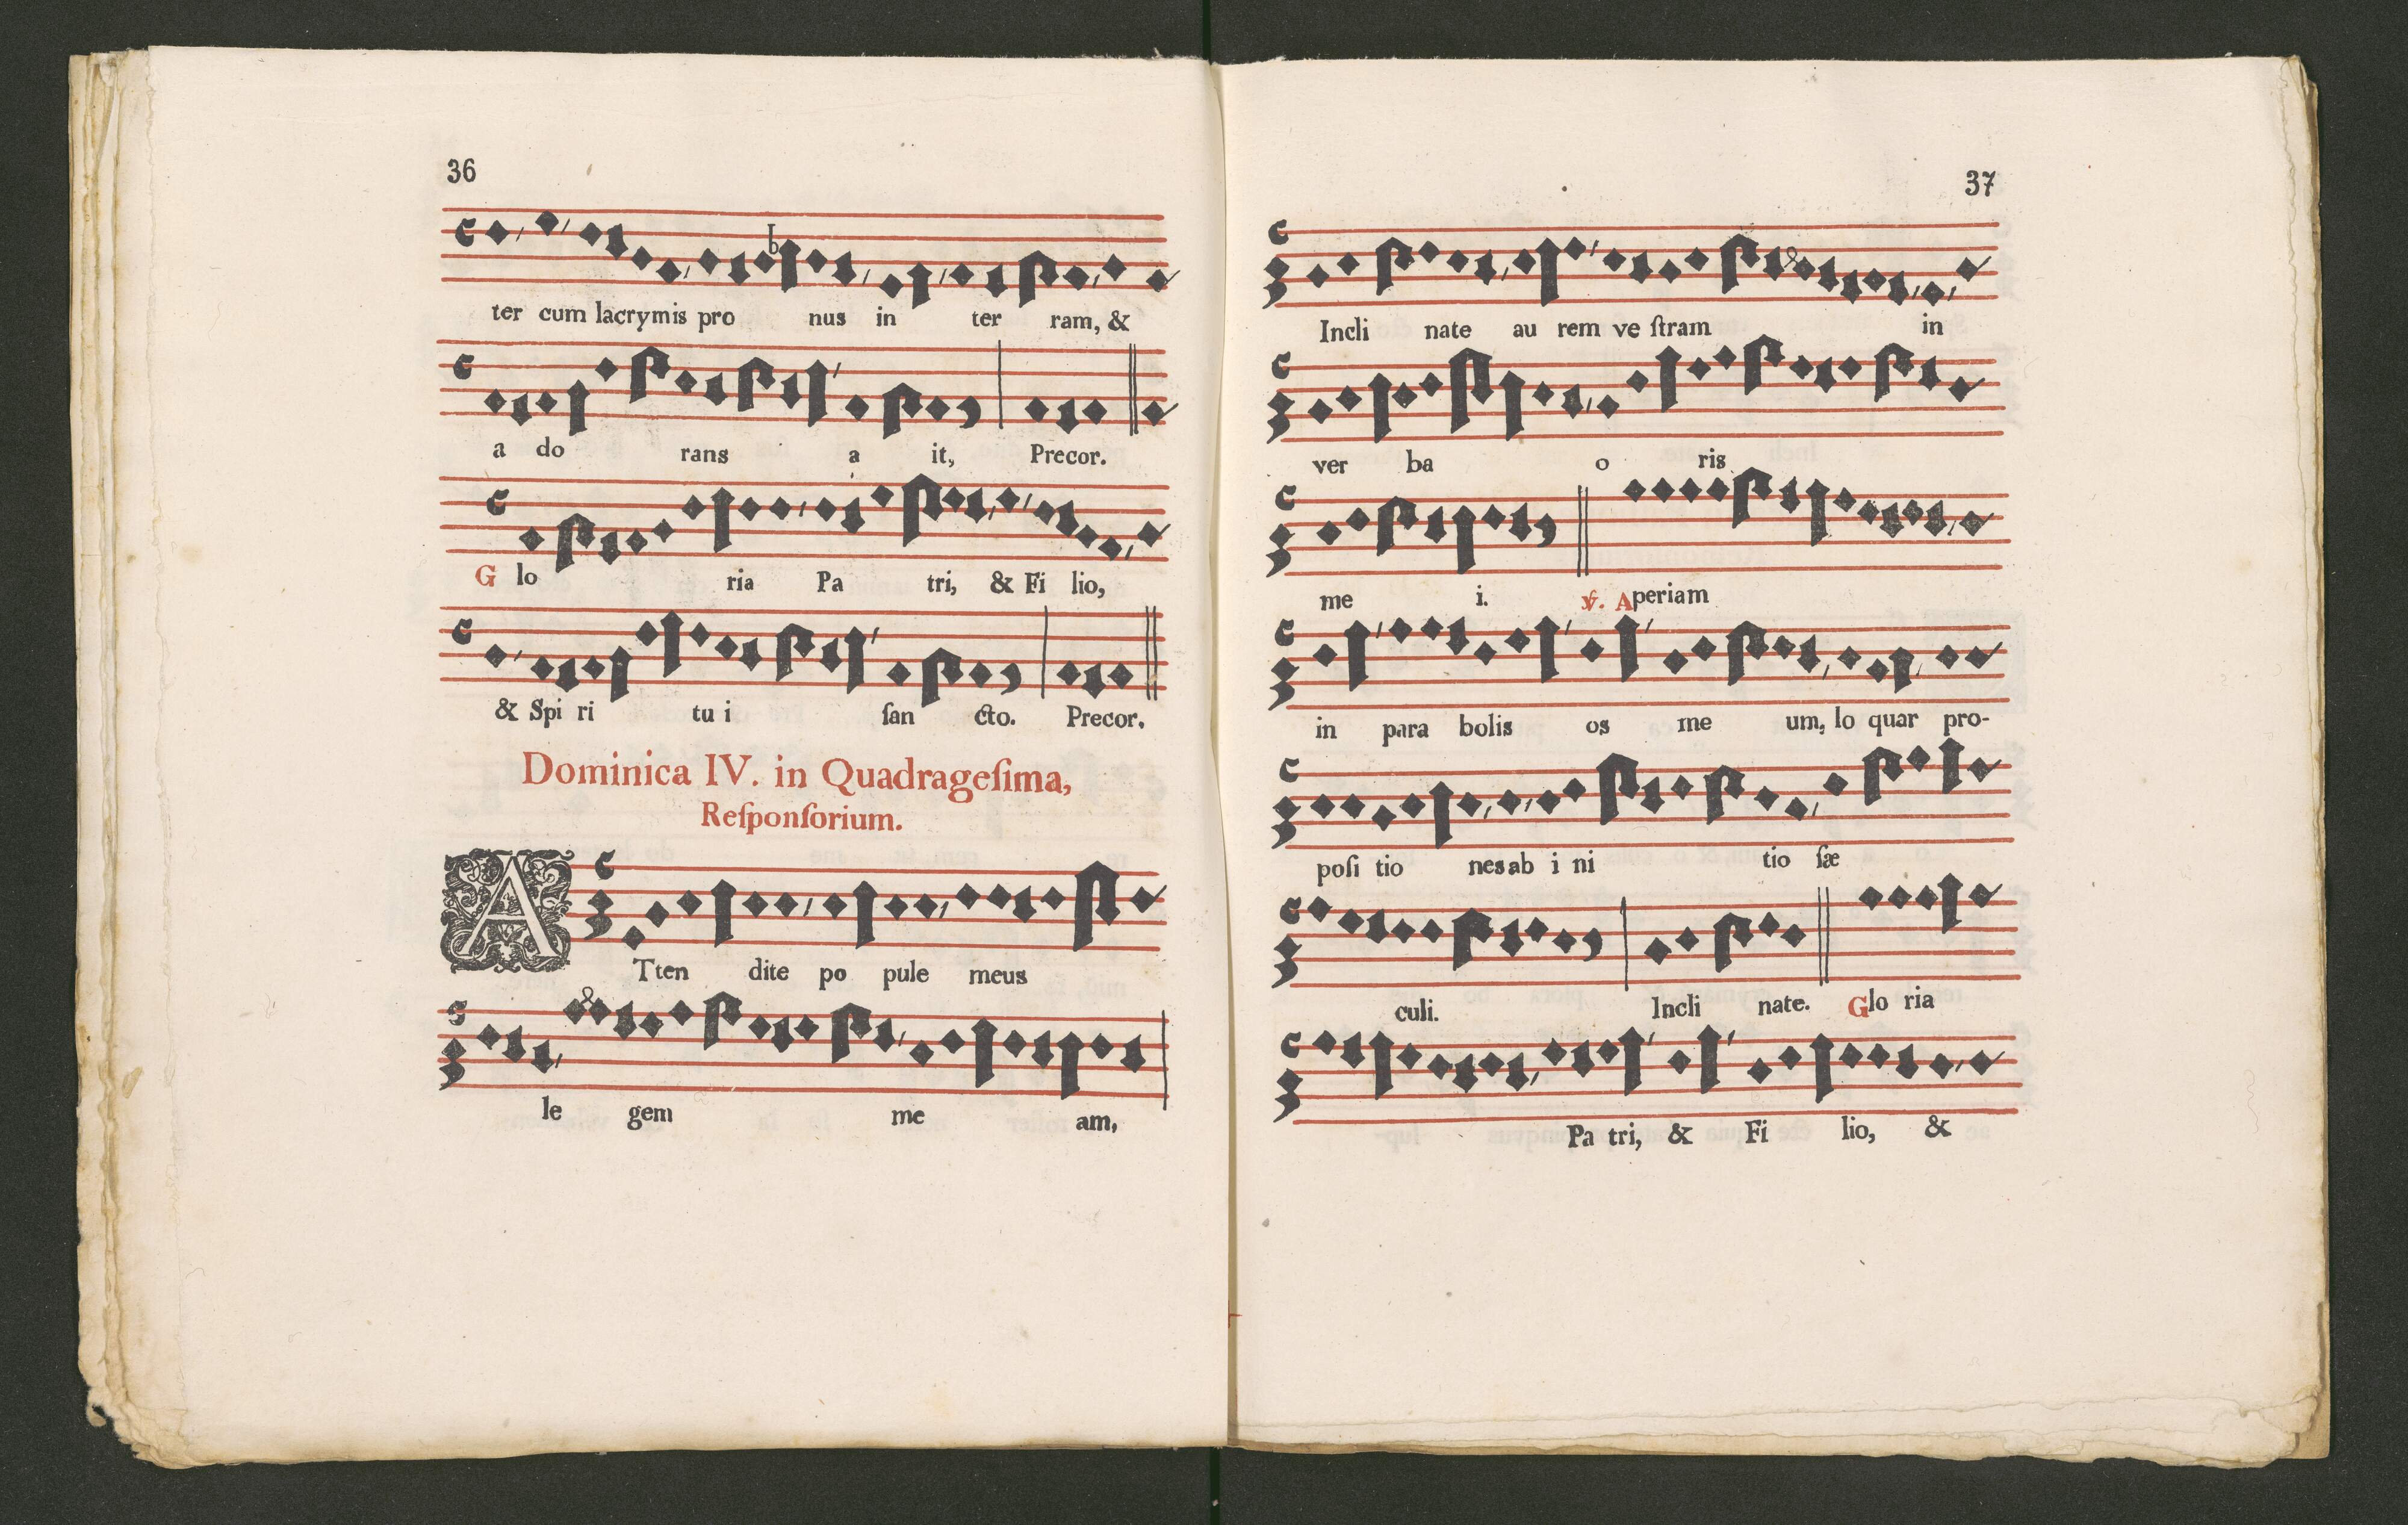 36
ter cum lacrymis pro nus in ter ram, &
a do rans a it, Precor.
G lo ria Pa tri, & Fi lio,
& Spi ri tu i ſan cto. Precor.
Dominica IV. in Quadrageſima,
Reſponſorium.
ATten dite po pule meus
le gem me am,
37
Incli nate au rem ve ſtram in
ver ba o ris
me i. ℣. Aperiam
in para bolis os me um, lo quar pro-
poſi tio nes ab i ni tio ſæ
culi. Incli nate. Glo ria
Pa tri, & Fi lio, &